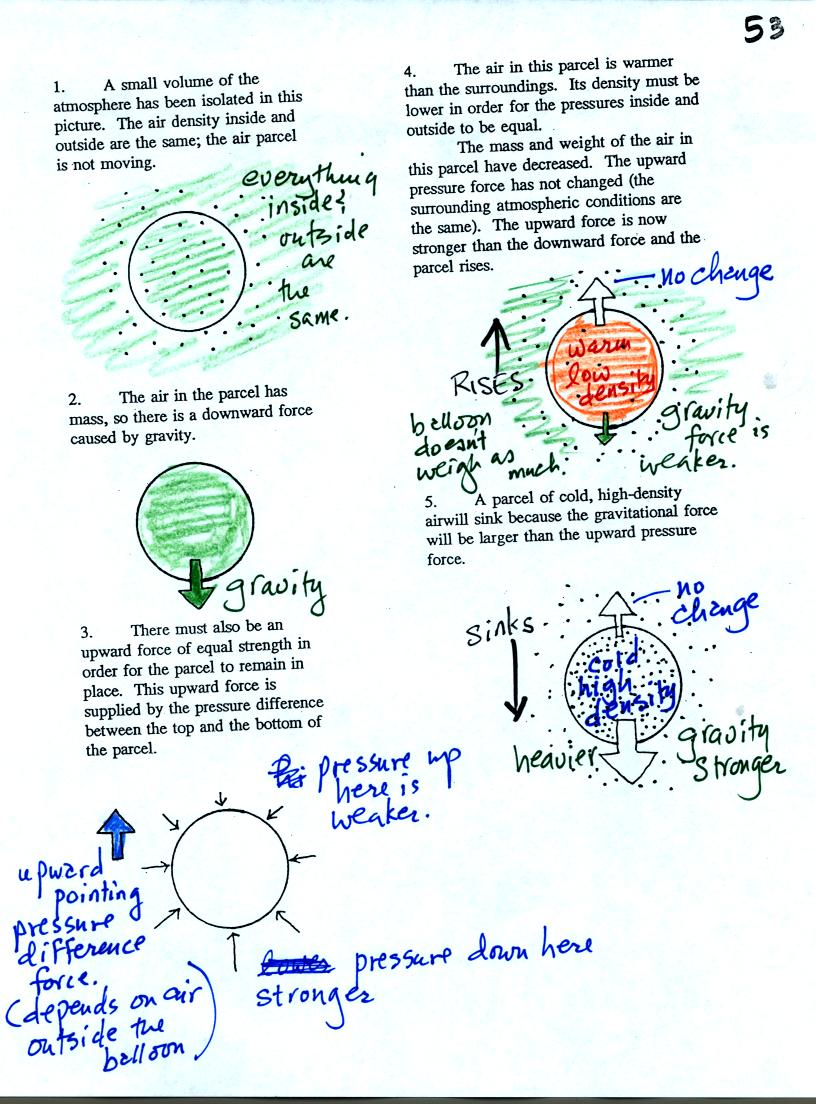 53
1. A small volume of the
atmosphere has been isolated in this
picture. The air density inside and
outside are the same; the air parcel
is not moving.
everything
inside &
outside
are
the
same.
2. The air in the parcel has
mass, so there is a downward force
caused by gravity.
gravity
3. There must also be an
upward force of equal strength in
order for the parcel to remain in
place. This upward force is
supplied by the pressure difference
between the top and the bottom of
the parcel.
pressure up
here is
weaker.
upward
pointing
pressure
difference
force.
(depends on air
outside the
balloon)
pressure down here
stronger
4. The air in this parcel is warmer
than the surroundings. Its density must be
lower in order for the pressures inside and
outside to be equal.
The mass and weight of the air in
this parcel have decreased. The upward
pressure force has not changed (the
surrounding atmospheric conditions are
the same). The upward force is now
stronger than the downward force and the
parcel rises.
no change
warm
low
density
RISES
balloon
doesn't
weigh as
much.
gravity
force is
weaker.
5. A parcel of cold, high-density
airwill sink because the gravitational force
will be larger than the upward pressure
force.
no
change
sinks
cold
high
density
heavier
gravity
stronger